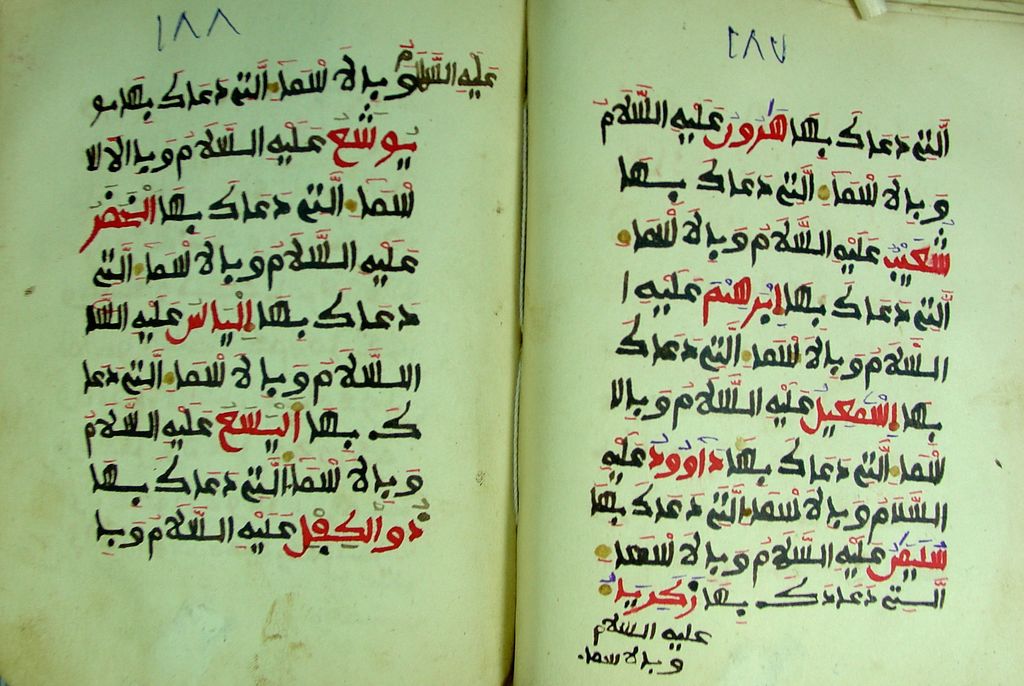 ١٨٧
التي دعاك بها هرون عليه السلام
وبالاسما التي دعاك بها
شعيب عليه السلام وبالاسما
التي دعاك بها ابرهيم عليه ا
السلام وبالاسما التي دعاك
بها اسمعيل عليه السلام وبالا
سما التي دعاك بها داوود عليه
السلام وبالاسما التي دعاك بها
سليمن عليه السلام وبالاسما
التي دعاك بها زكريا
عليه السلام
وبالاسما
١٨٨
عليه السلام وبالاسما التي دعاك بها يو
يوشع عليه السلام وبالاس
سما التي دعاك بها الخضر
عليه السلام وبالاسما التي
دعاك بها الياس عليه السلا
السلام وبالاسما التي دعا
ك بها اليسع عليه السلام
وبالاسما التي دعاك بها
ذو الكفل عليه السلام وبا